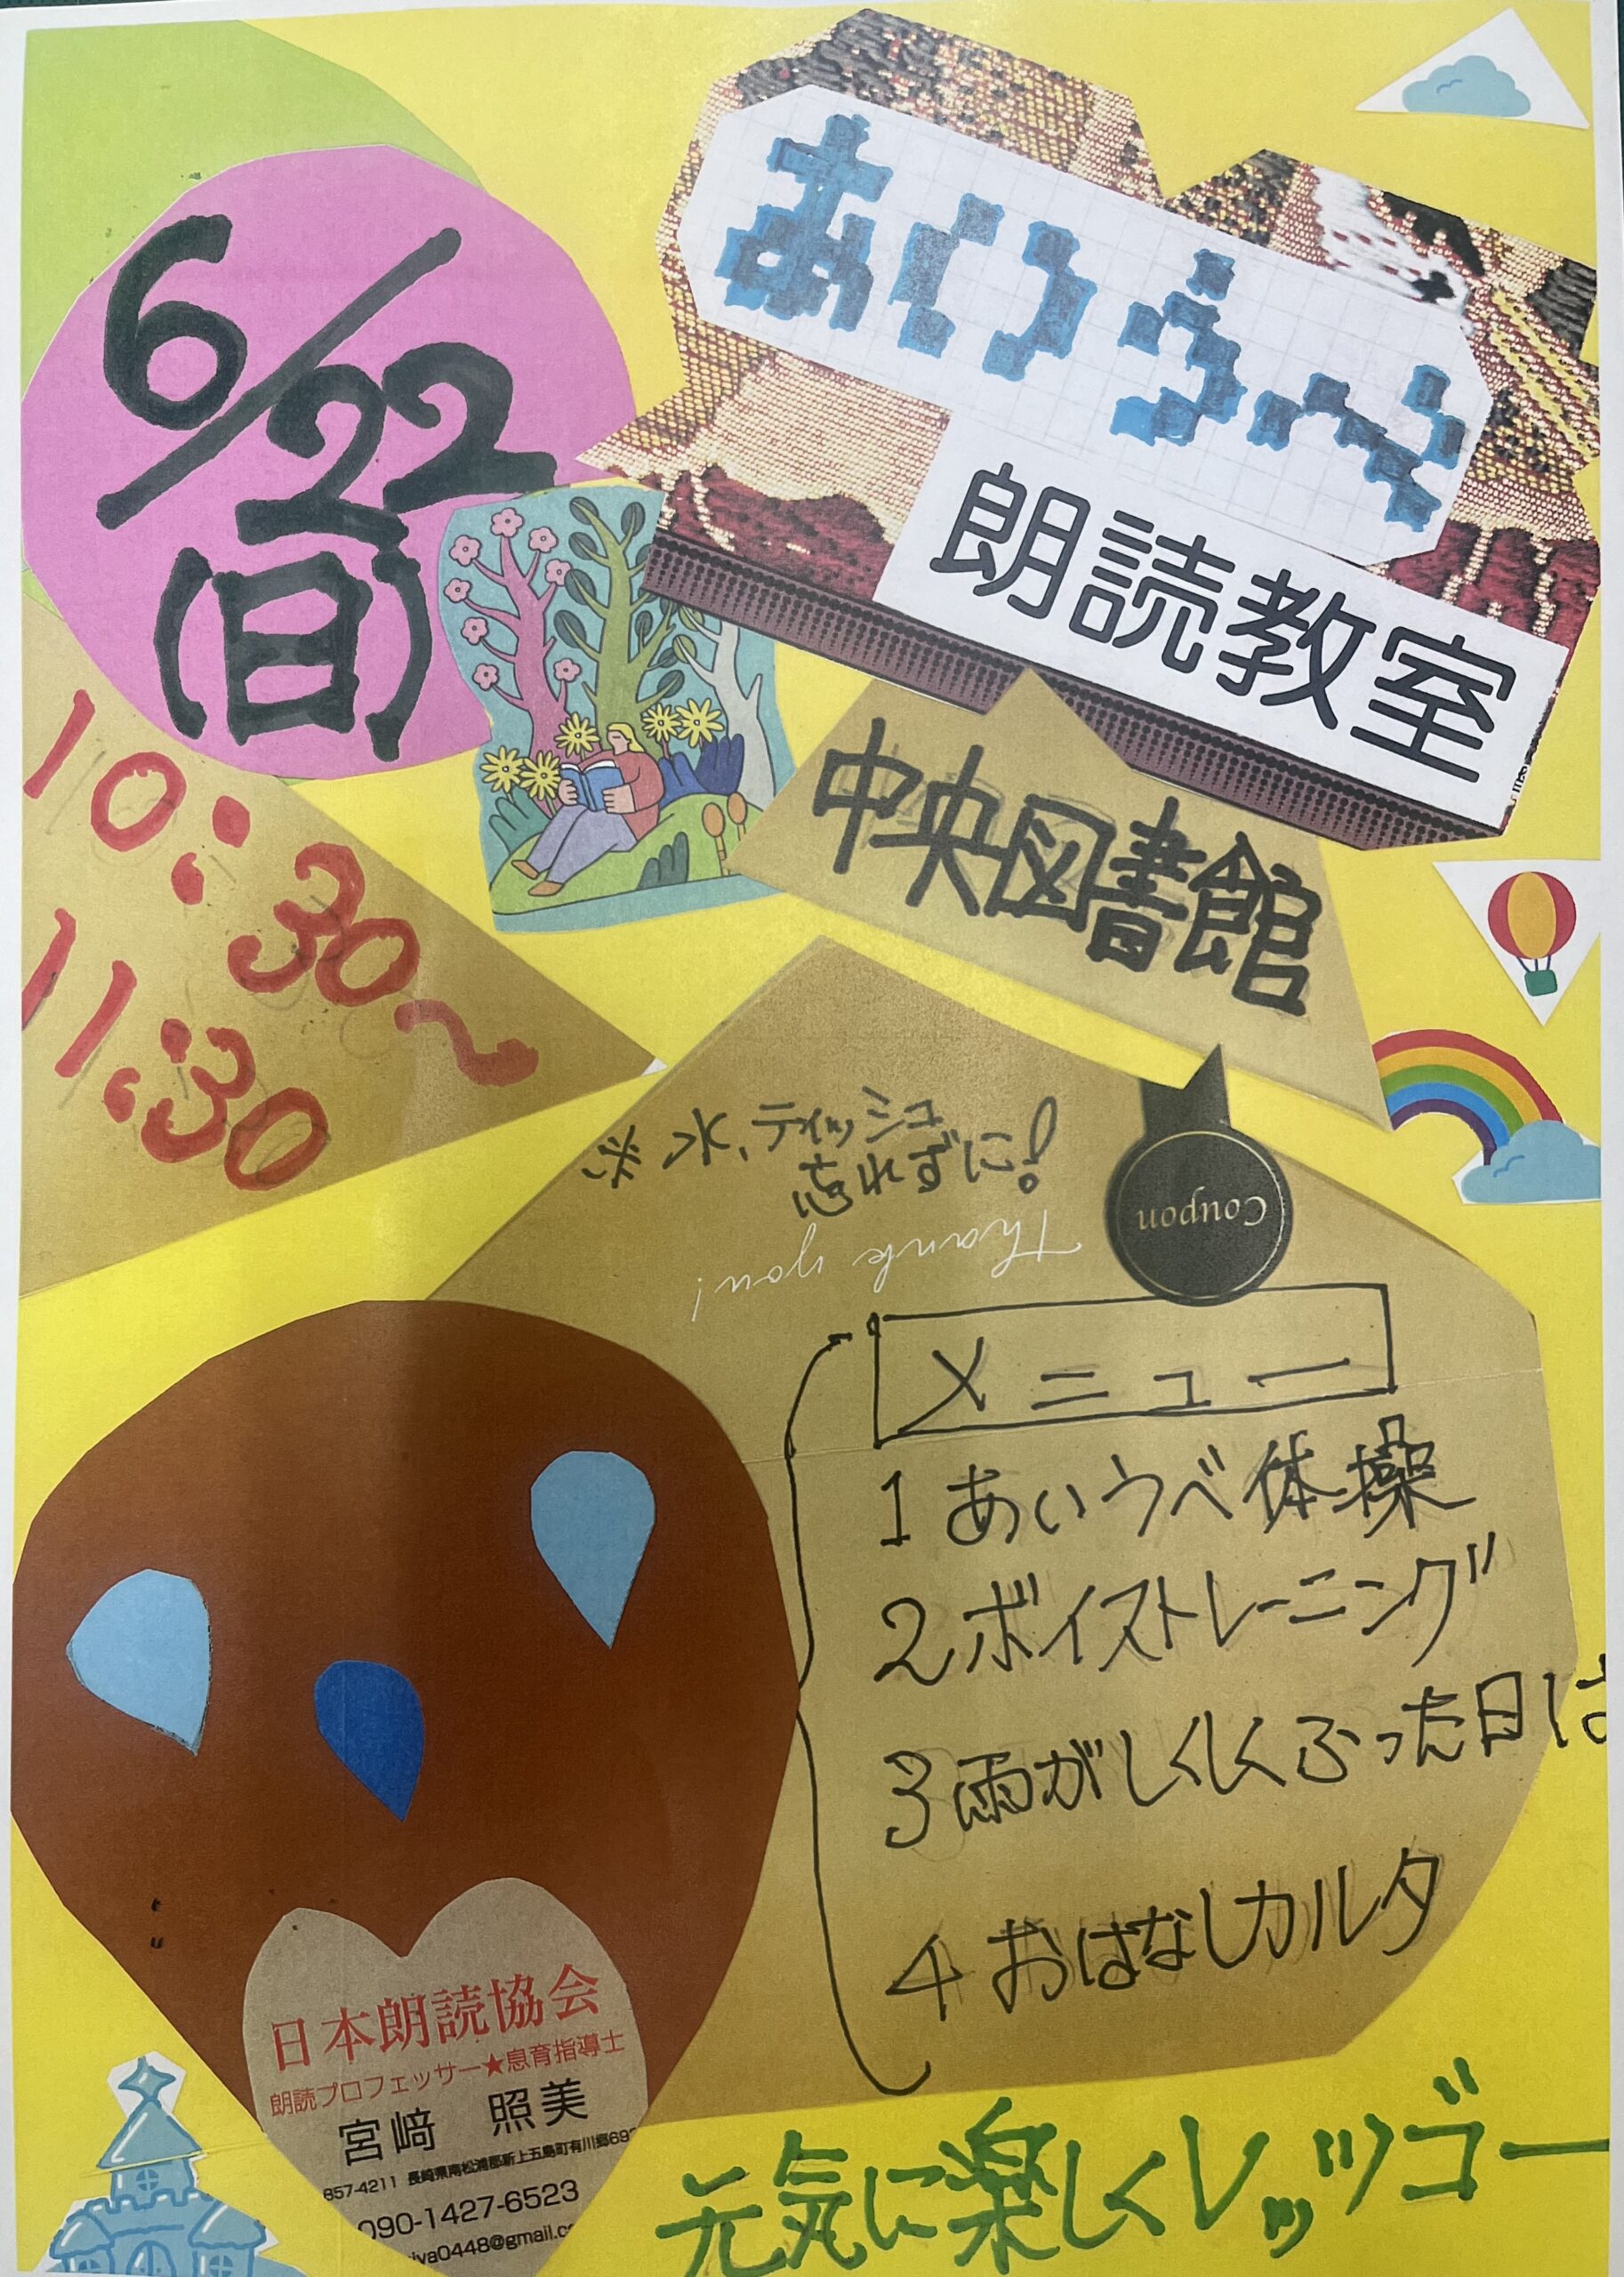 6/22
(日)
あいうべ
朗読教室
10:30~
11:30
中央図書館
※ 水、ティッシュ
忘れずに!
Thank you!
Coupon
メニュー
1 あいうべ体操
2 ボイストレーニング
3 雨がしくしくふった日は
4 おはなしカルタ
日本朗読協会
朗読プロフェッサー★息育指導士
宮﨑 照美
857-4211 長崎県南松浦郡新上五島町有川郷69
090-1427-6523
iva0448@gmail.c
元気に楽しくレッツゴー